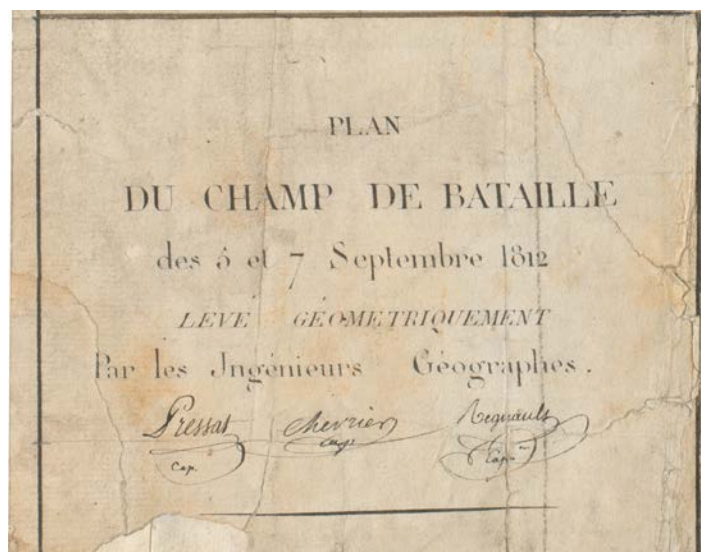 PLAN
DU CHAMP DE BATAILLE
des 5 et 7 Septembre 1812
LEVÉ GÉOMETRIQUEMENT
Par les Ingénieurs Géographes.
Pressat Chevrier Regnault
Cap. Cap. Cap.